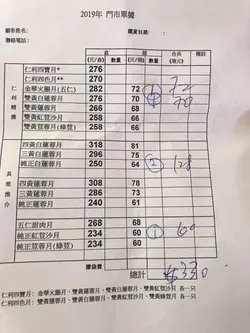 2019年 門市單據
顧客姓名:
購貨日期:
聯絡電話:
盒 個 合共 備註
(元/盒) 數量 (元/個) 數量 (港元)
仁利推介
仁利四寶月* 276
仁利四色月** 270
金華火腿月(五仁) 282 72 72
雙黃白蓮蓉月 276 70 70
雙黃蓮蓉月 266 68
雙黃紅荳沙月 258 66
雙黃荳蓉月(綠荳) 258 66
其他推介
四黃白蓮蓉月 318 81
三黃白蓮蓉月 296 75
純正白蓮蓉月 250 64 2 128
四黃蓮蓉月 308 78
三黃蓮蓉月 286 73
純正蓮蓉月 240 61
五仁甜肉月 268 68
純正紅荳沙月 234 60 1 60
純正荳蓉月(綠荳) 234 60
膠袋費
總計 $330
仁利四寶月: 金華火腿月、雙黃蓮蓉月、雙黃白蓮蓉月、雙黃紅荳沙月 各一只
仁利四色月: 雙黃蓮蓉月、雙黃白蓮蓉月、雙黃紅荳沙月、雙黃綠荳月 各一只